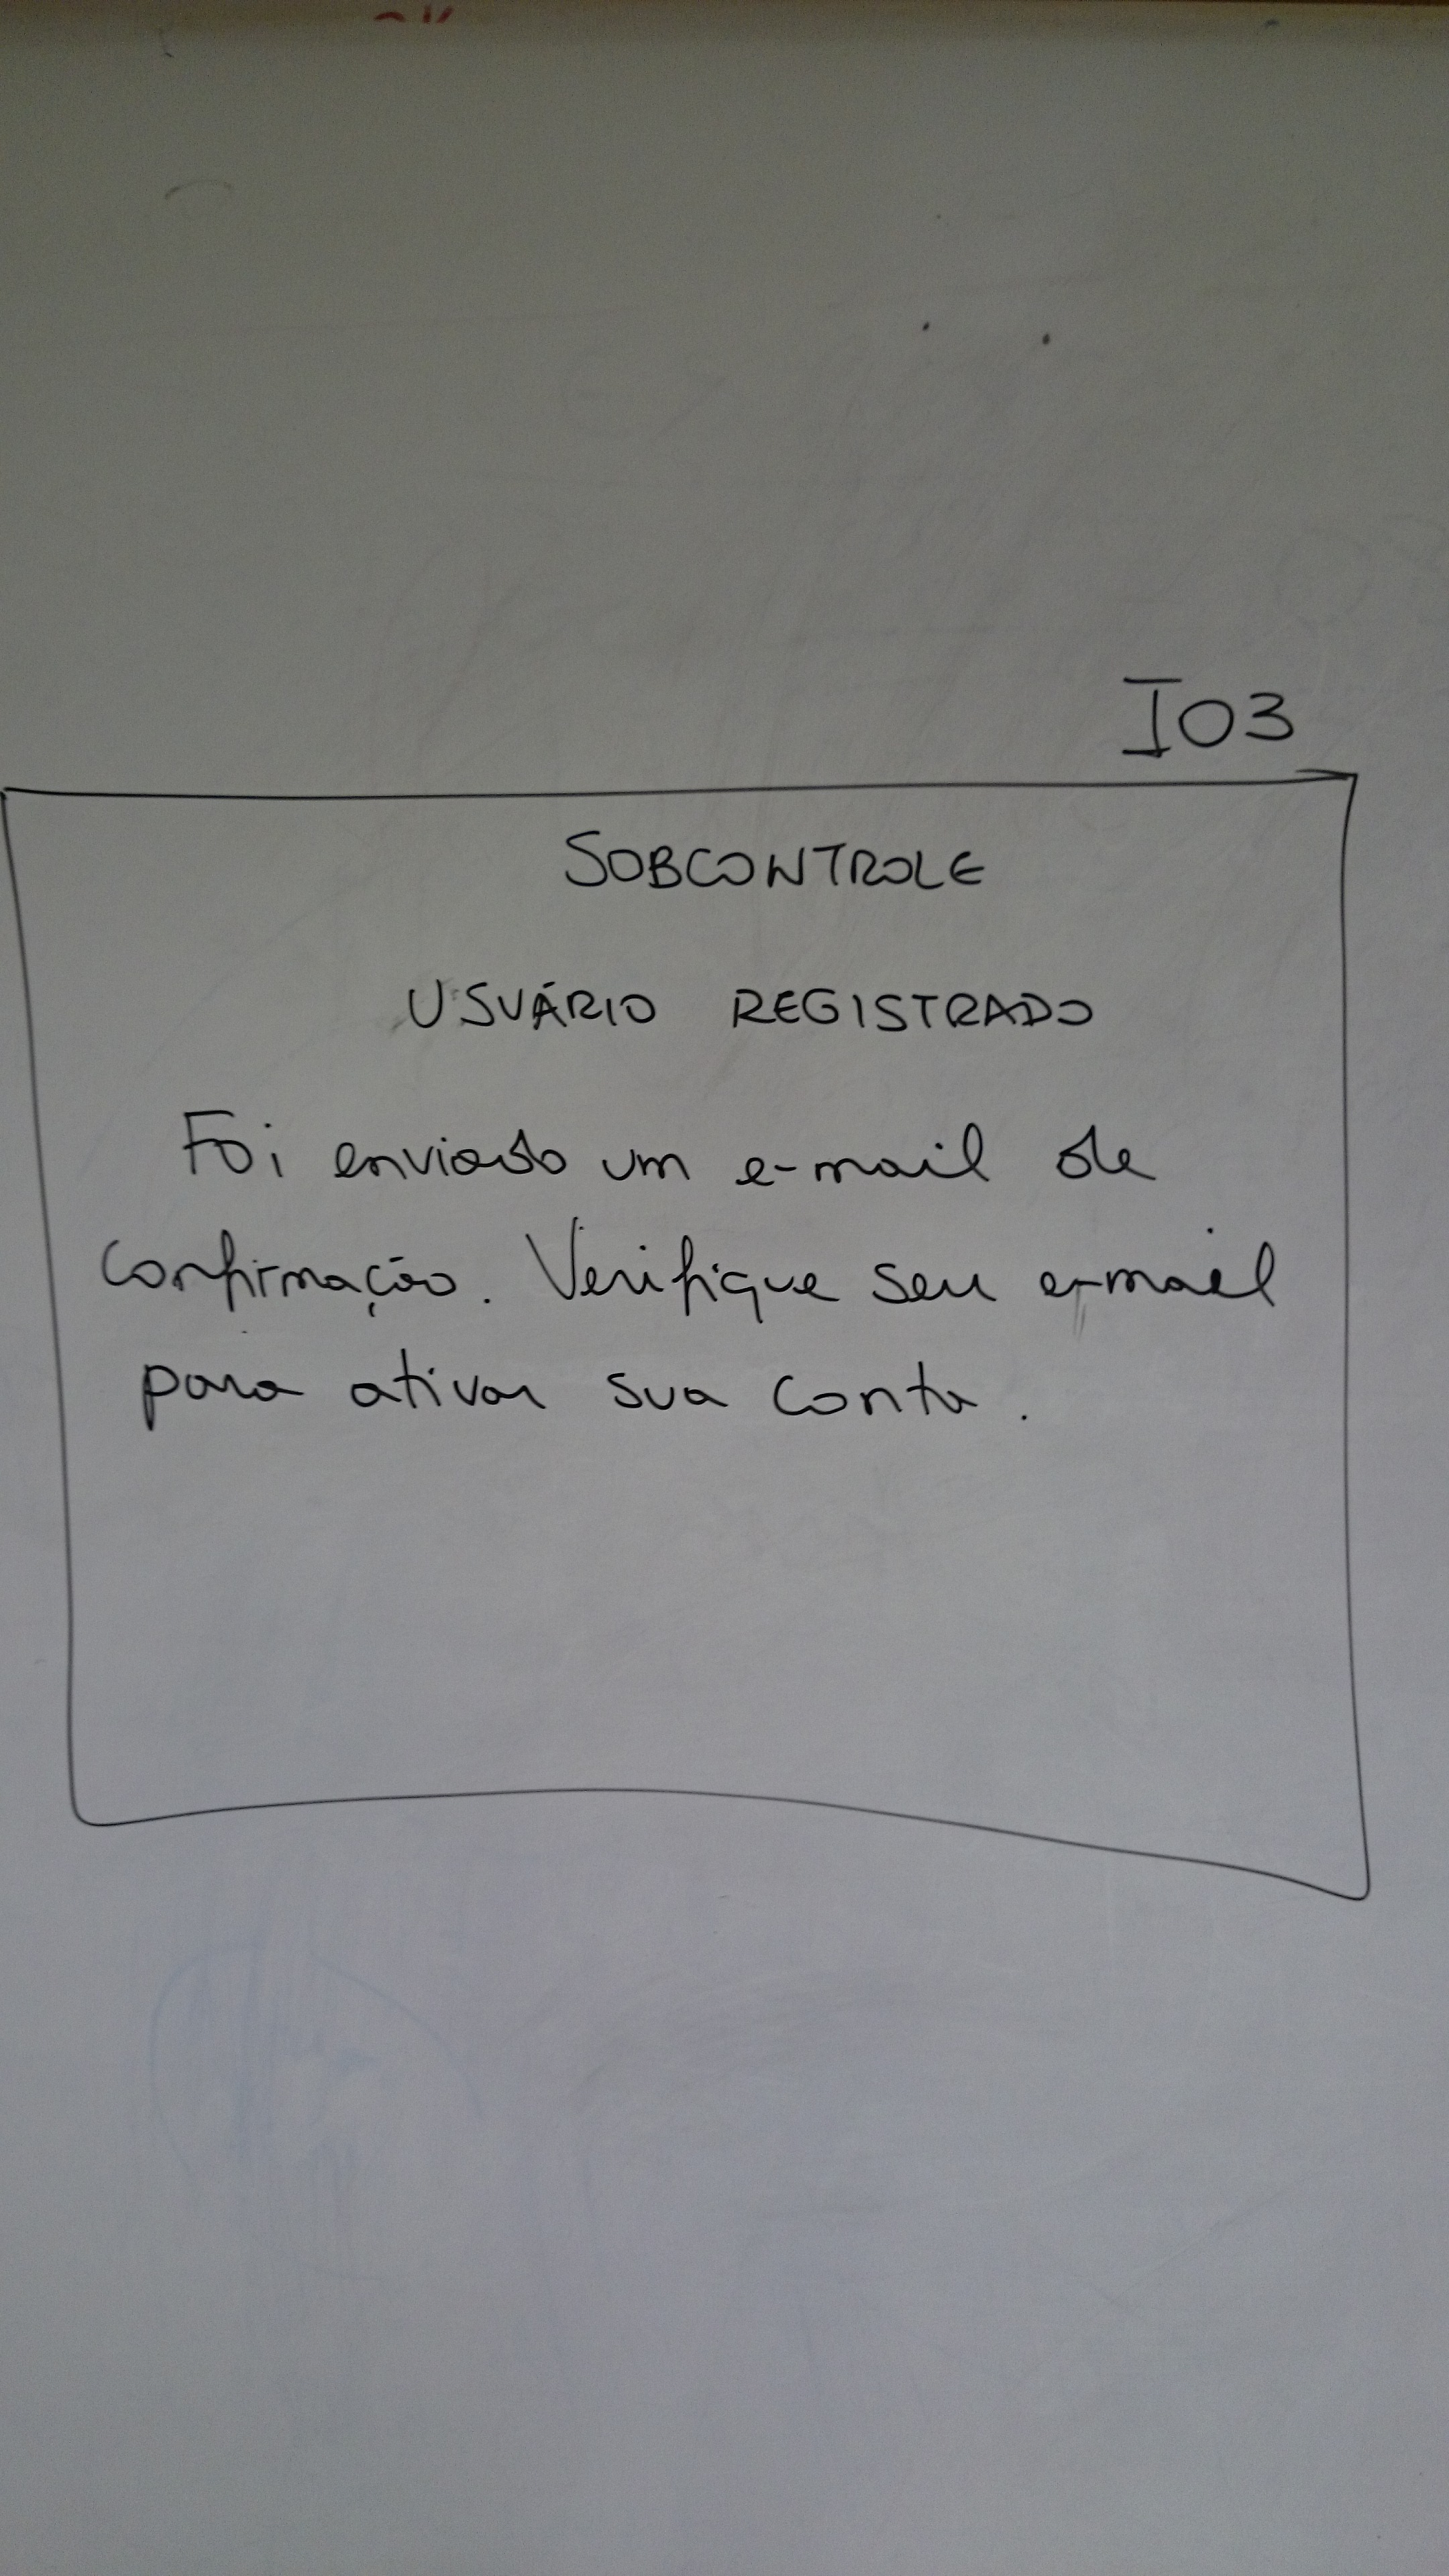 I03
SOBCONTROLE
USUÁRIO REGISTRADO
Foi enviado um e-mail de
confirmação. Verifique seu e-mail
para ativar sua conta.